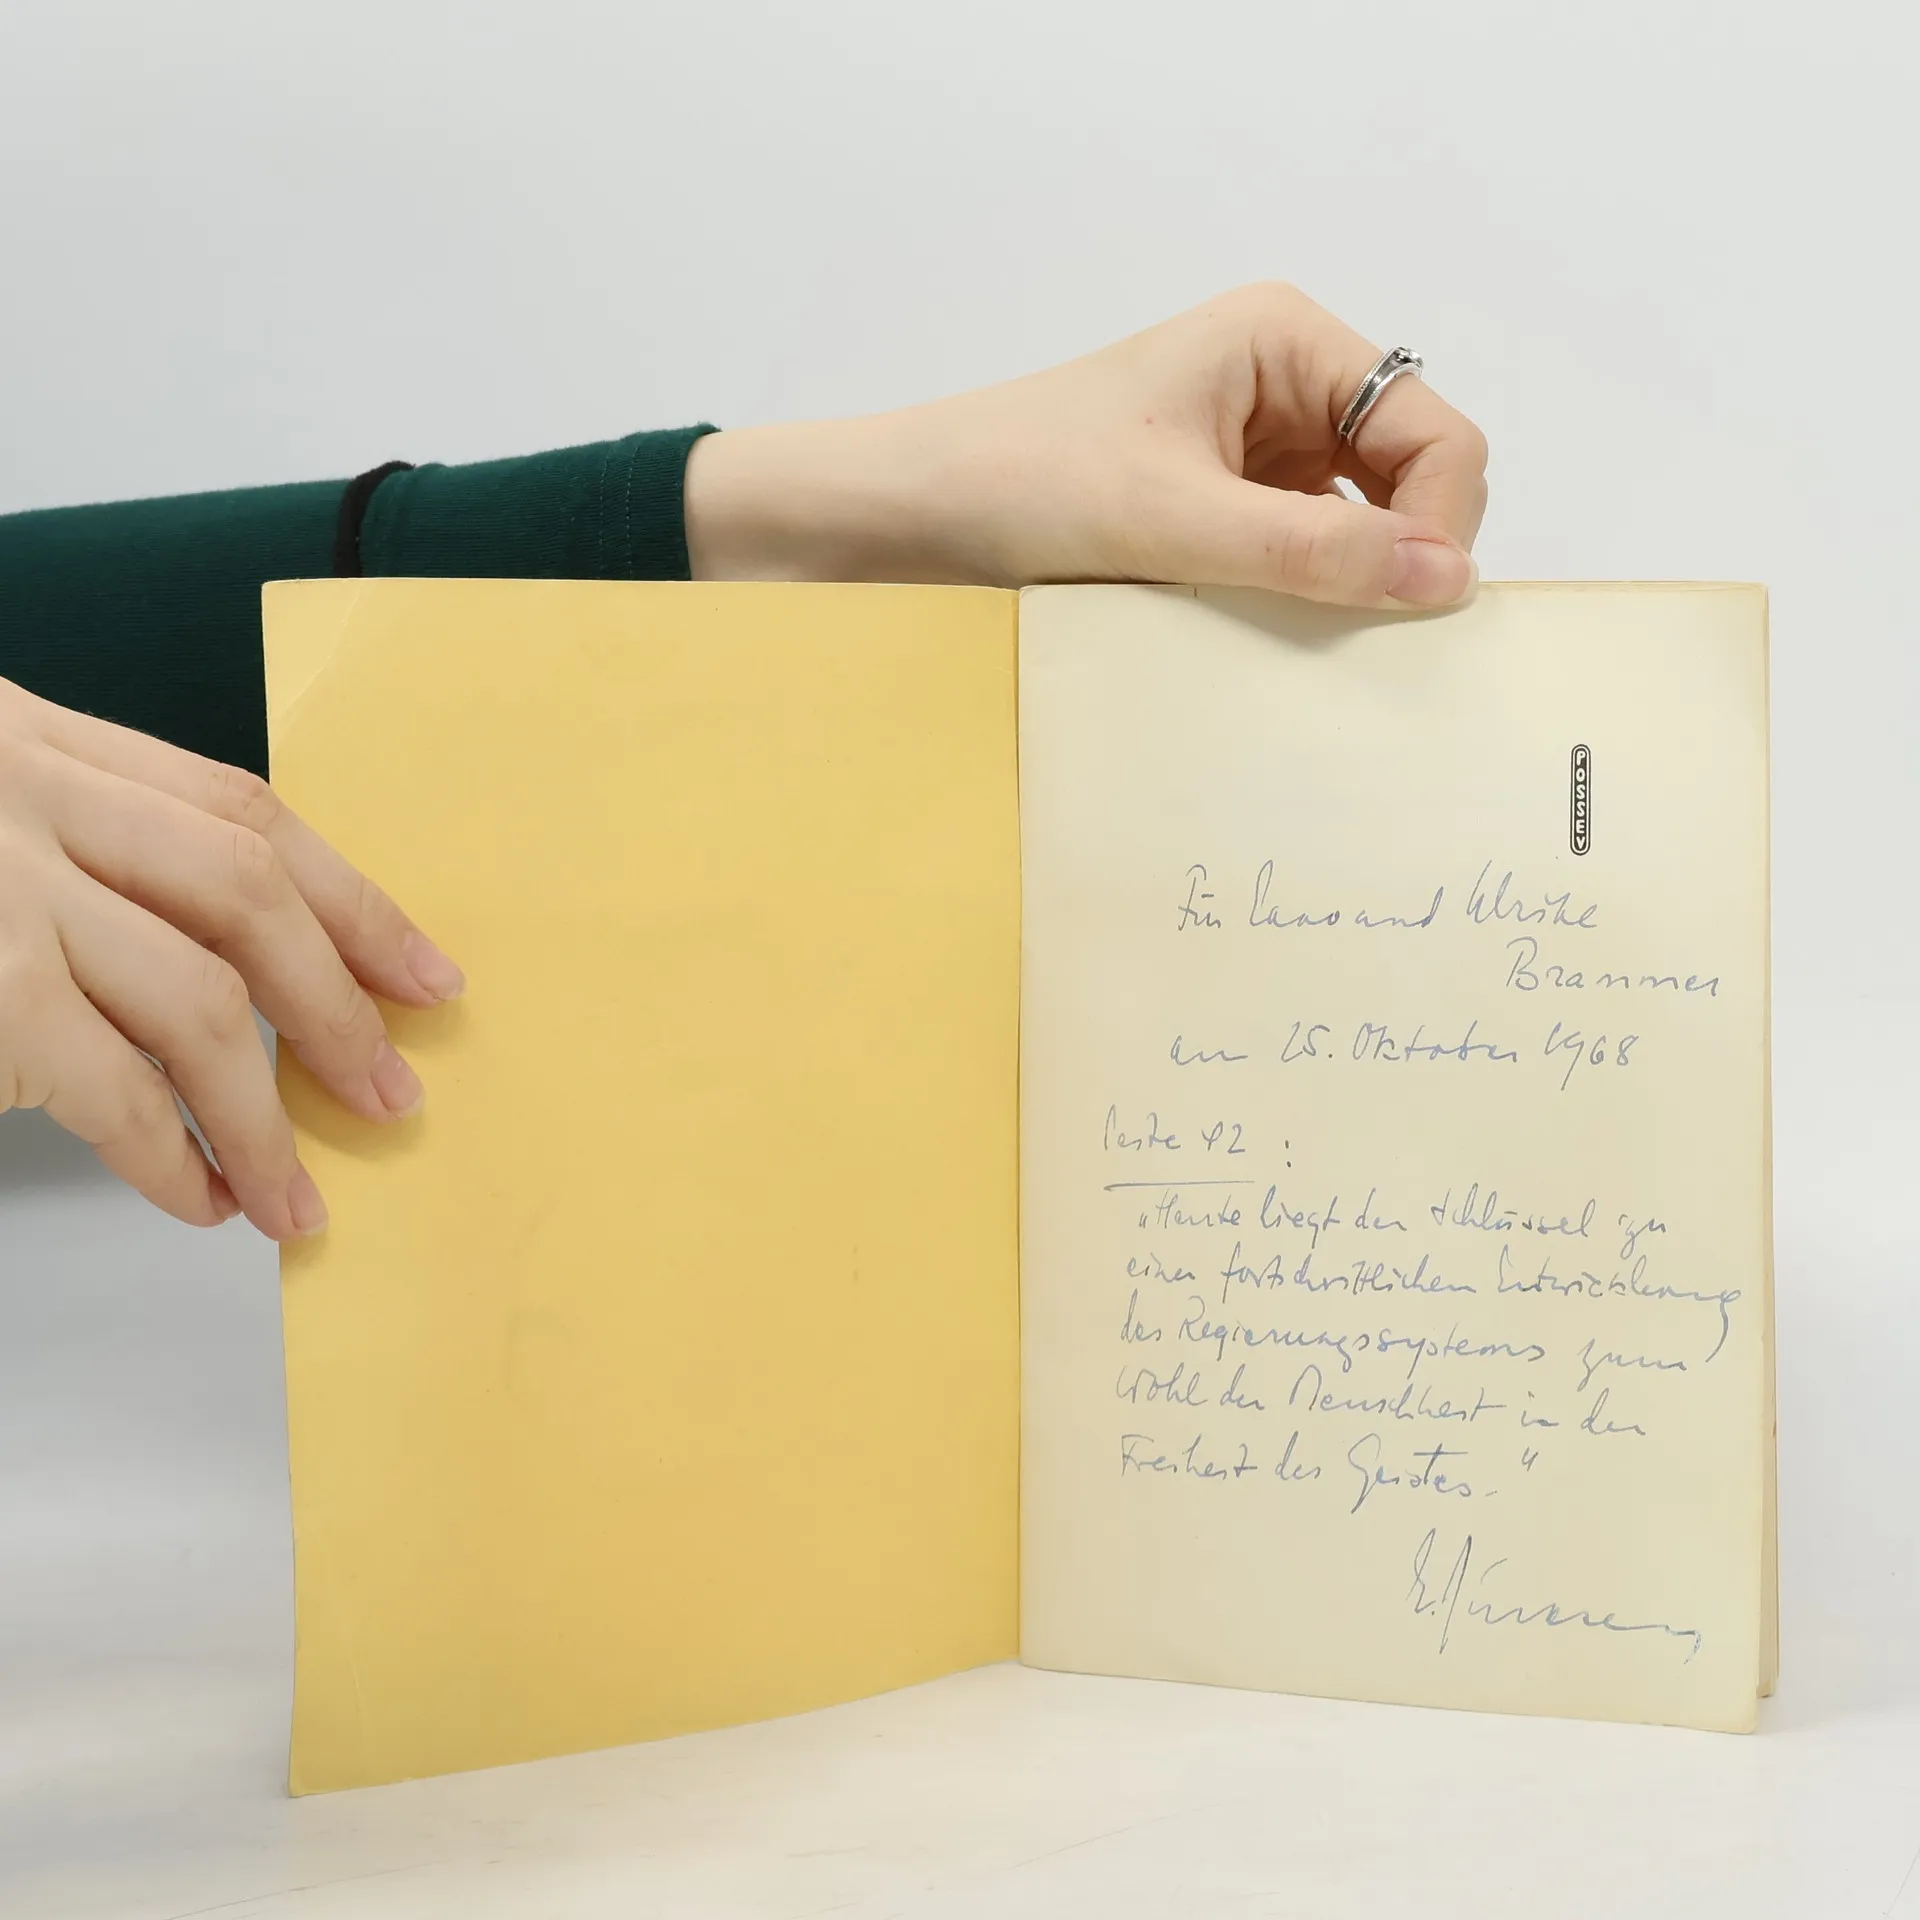 POSSEV
Für Enno und Ulrike
Brammer
am 25. Oktober 1968
Seite 42 :
„Heute liegt der Schlüssel zu
einer fortschrittlichen Entwicklung
des Regierungssystems zum
Wohl der Menschheit in der
Freiheit des Geistes.“